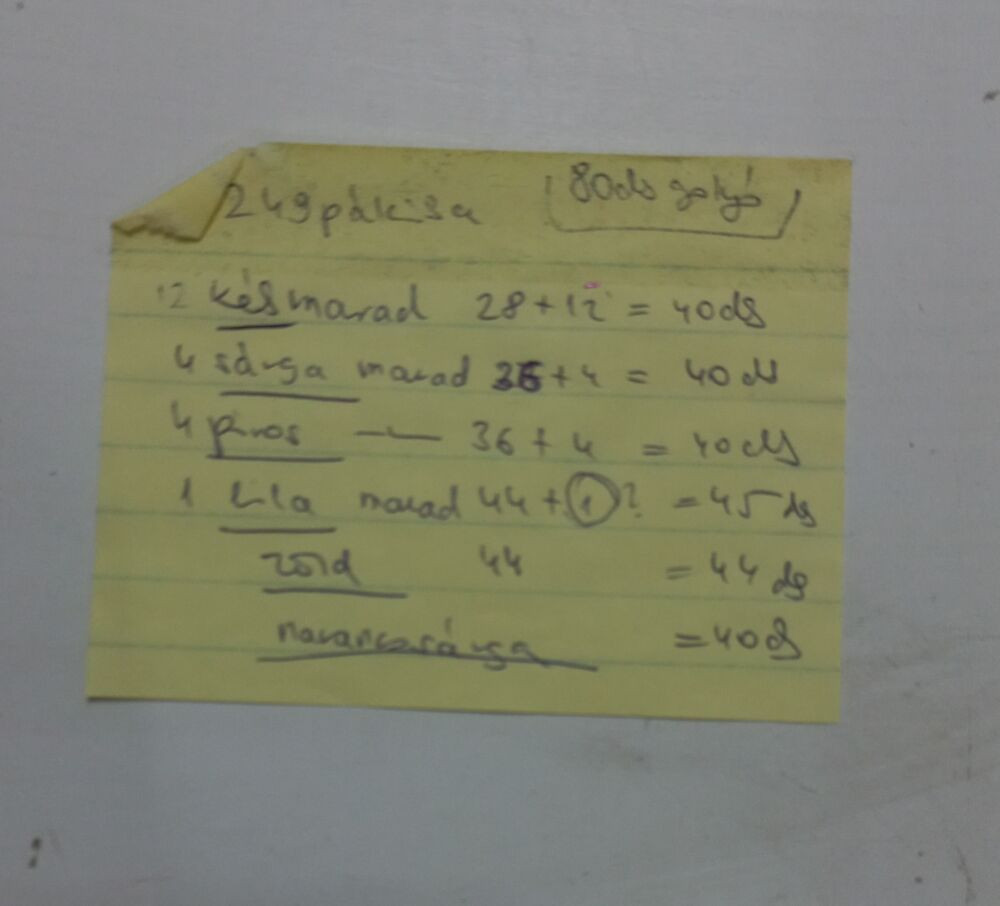 249 pálcika 80db golyó
12 kék marad 28 + 12 = 40 db
4 sárga marad 36 + 4 = 40 db
4 piros –––– 36 + 4 = 40 db
1 lila marad 44 + 1 ? = 45 db
zöld 44 = 44 db
narancssárga = 40 db